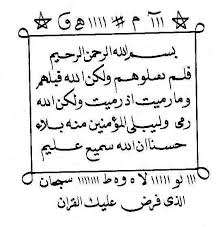 ااآ م # ااااا هـ ق
بسم الله الرحمن الرحيم
فلم تعلوهم ولكن الله قبلهم
وما رميت اذ رميت ولكن الله
رمى وليبلى المؤمنين منه بلاء
حسنا ان الله سميع عليم
ااا لو ااااا لاه وه ط ااااااا سبحان
الذى فرض عليك القران